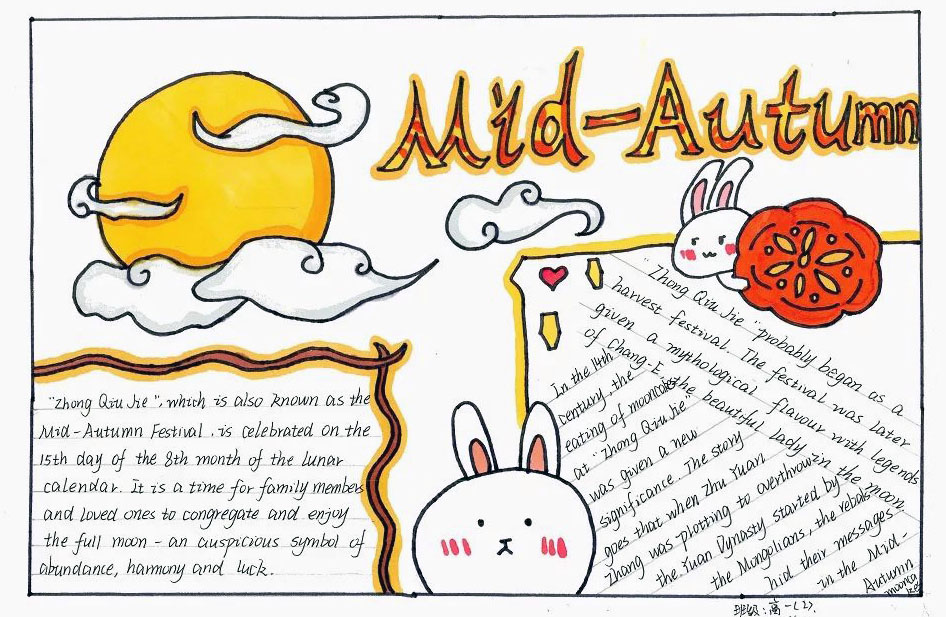 Mid-Autumn
"Zhong Qiu Jie", which is also known as the
Mid-Autumn Festival, is celebrated on the
15th day of the 8th month of the lunar
calendar. It is a time for family members
and loved ones to congregate and enjoy
the full moon - an auspicious symbol of
abundance, harmony and luck.
"Zhong Qiu Jie" probably began as a
harvest festival. The festival was later
given a mythological flavour with legends
of Chang-E, the beautiful lady in the moon.
In the 14th
century, the
eating of mooncakes
at "Zhong Qiu Jie"
was given a new
significance. The story
goes that when Zhu Yuan
Zhang was plotting to overthrow
the Yuan Dynasty started by
the Mongolians, the rebels
hid their messages
in the Mid-
Autumn
mooncakes
班级:高一(2).